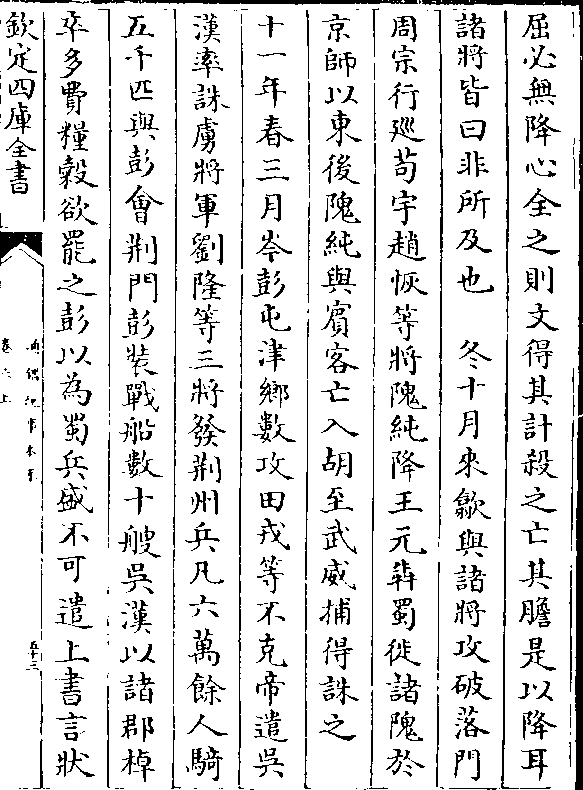 屈必無降心全之則文得其計殺之亡其膽是以降耳
諸將皆曰非所及也　冬十月來歙與諸將攻破落門
周宗行廵茍宇趙恢等將隗純降王元犇蜀徙諸隗於
京師以東後隗純與賓客亡入胡至武威捕得誅之
十一年春三月岑彭屯津鄉數攻田戎等不克帝遣吳
漢率誅虜將軍劉隆等三將發荆州兵凡六萬餘人騎
五千匹與彭會荆門彭裝戰船數十艘吳漢以諸郡棹
卒多費糧穀欲罷之彭以為蜀兵盛不可遣上書言狀
欽定四庫全書
通鑑紀事本末
卷六上
五十三